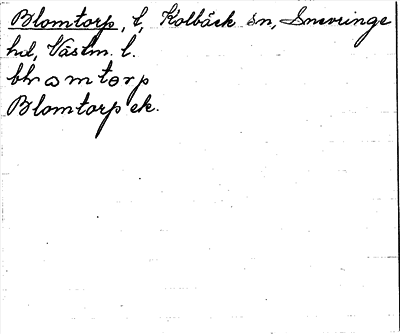 Blomtorp, t, Kolbäck sn, Snevringe
hd, Västm. l.
Blomtorp ek.